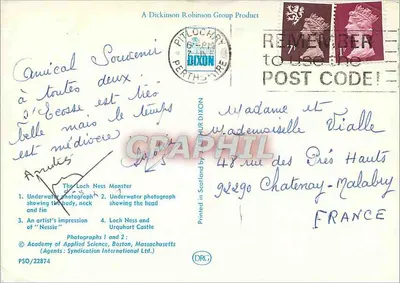 A Dickinson Robinson Group Product
PITLOCHRY
PERTHSHIRE
REMEMBER
to use the
POST CODE!
DIXON
7
Amical Souvenir
à toutes deux !
L'Ecosse est très
belle mais le temps
est médiocre
Madame et
Mademoiselle Vialle
48 rue des Prés Hauts
92290 Chatenay-Malabry
FRANCE
CPARAPHIL
Printed in Scotland by ARTHUR DIXON
The Loch Ness Monster
1. Underwater photograph showing the body, neck and fin
2. Underwater photograph showing the head
3. An artist's impression of "Nessie"
4. Loch Ness and Urquhart Castle
Photographs 1 and 2:
© Academy of Applied Science, Boston, Massachusetts
(Agents: Syndication International Ltd.)
PSO/22874
DRG